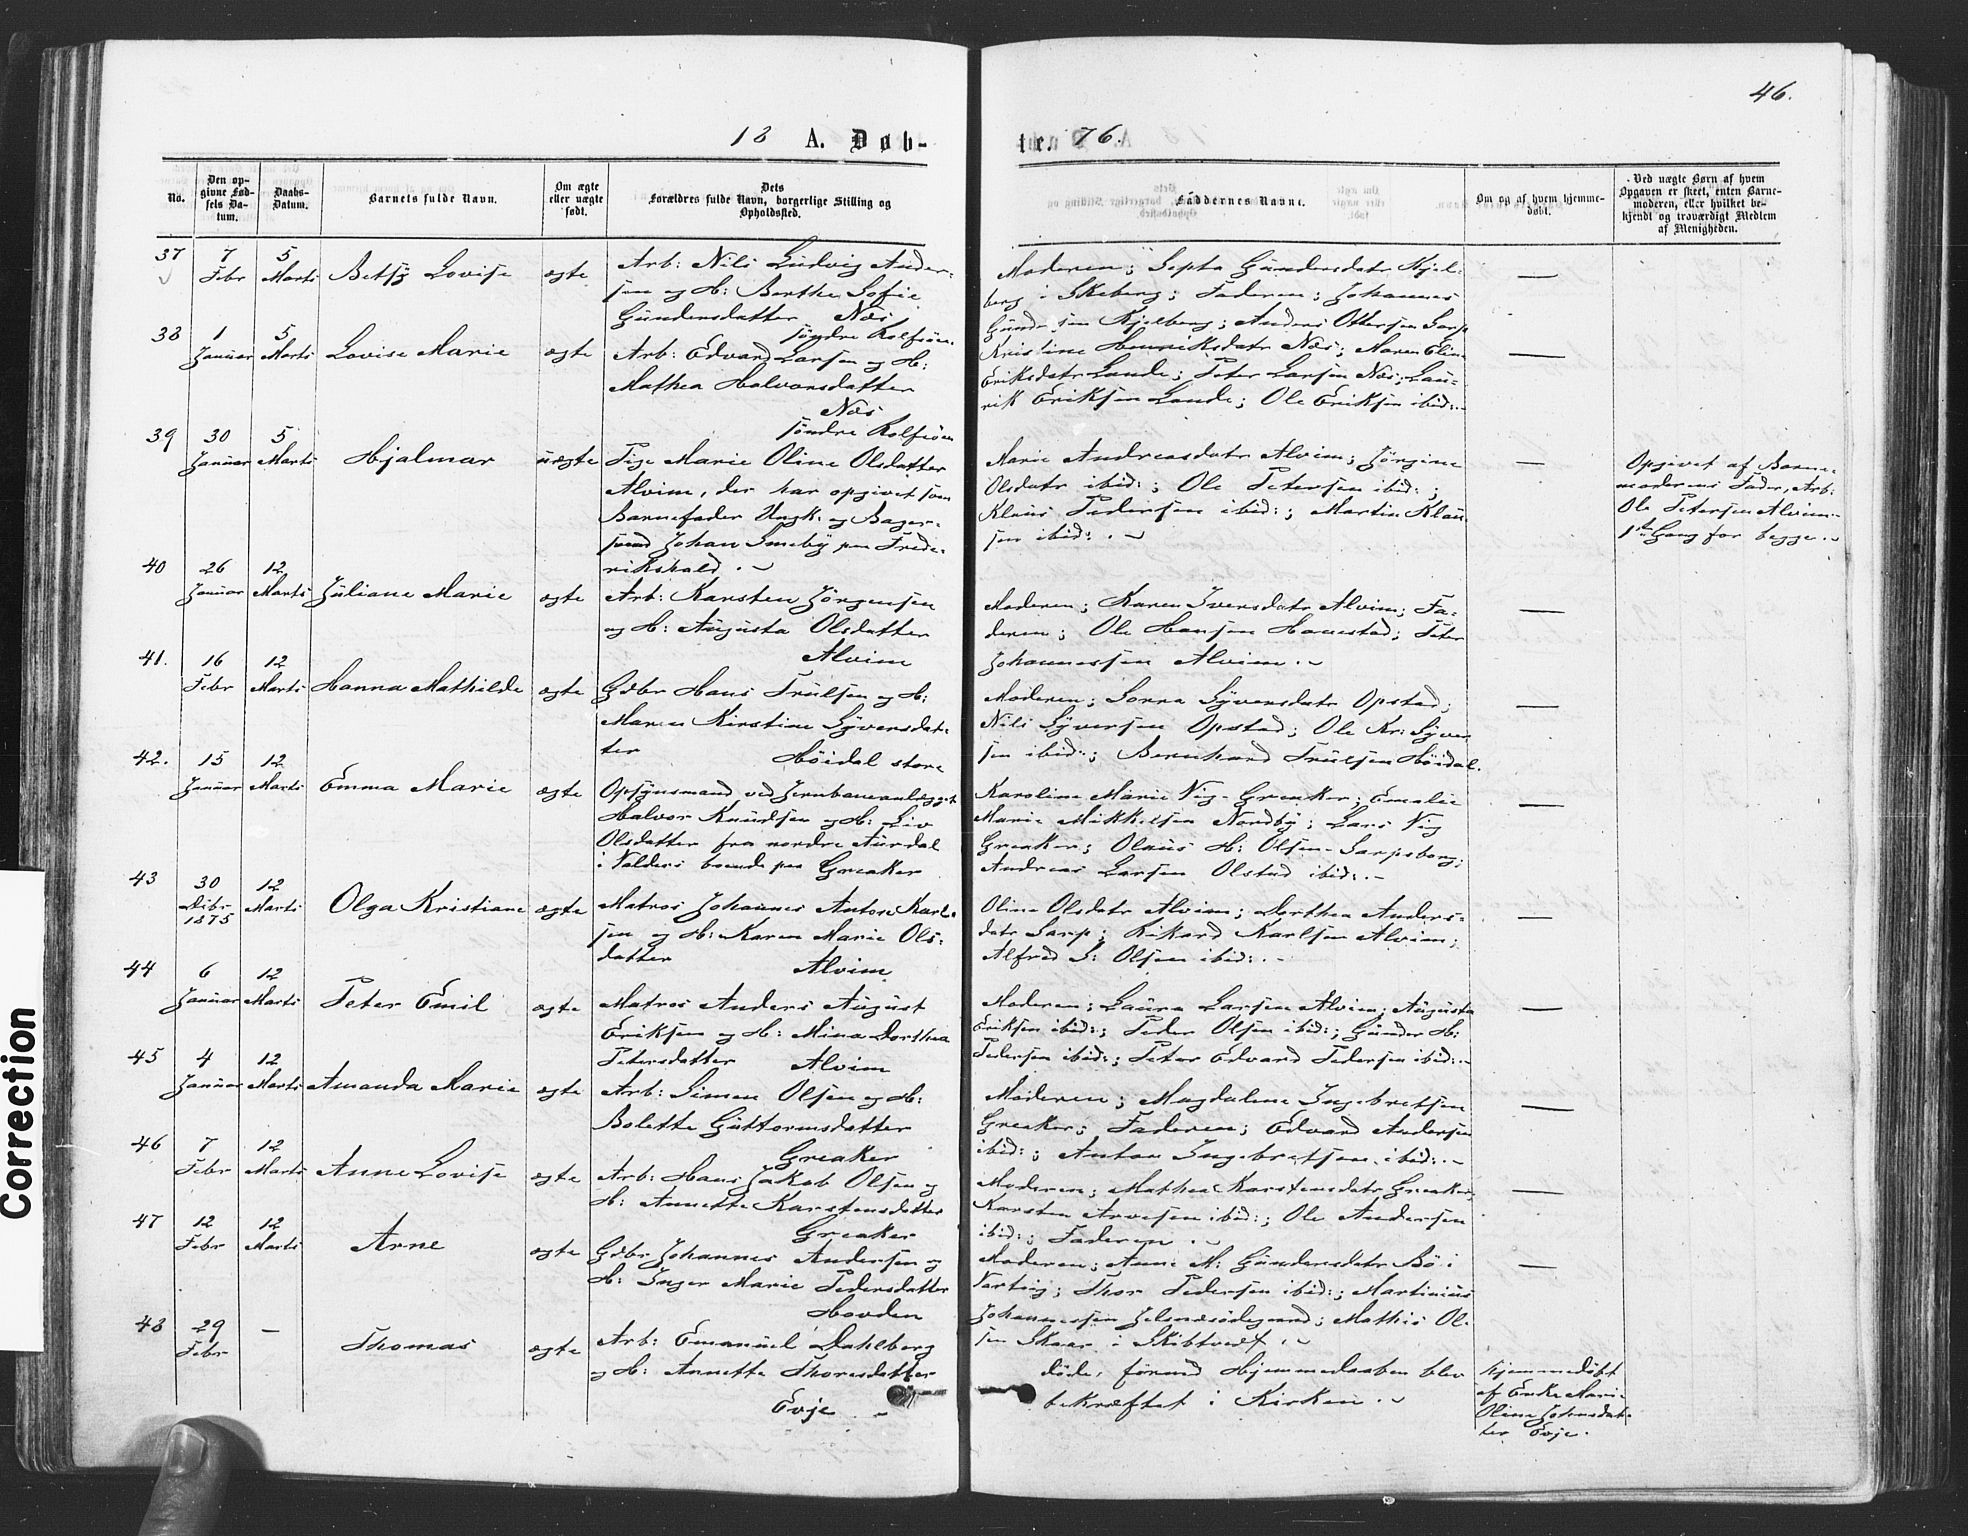 46.
18 A. Døb-
te. 76.
No.
Den op-
givne Fød-
sels Da-
tum.
Daabs-
Datum.
Barnets fulde Navn.
Om ægte
eller uægte
født.
Dets
Forældres fulde Navn, borgerlige Stilling og
Opholdssted.
Faddernes Navne.
Om og af hvem hjemme-
døbt.
Ved uægte Børn af hvem
Opgaven er skeet, enten Barne-
moderen, eller hvilket be-
kjendt og troværdigt Medlem
af Menigheden.
37 7 Febr 5 Marts Betsy Lovise ægte
Arb: Nils Ludvig Ander-
sen og H: Berthe Sofie
Gundersdatter Næs
søndre Rolfsöen
Moderen; Septa Gundersdatr Kjel-
berg i Skeberg; Faderen; Johannes
Gundersen Kjelberg; Anders Ottersen Sarp
38 1 Januar 5 Marts Lovise Marie ægte —
Arb: Edvard Larsen og H:
Mathea Halvorsdatter
Næs
søndre Rolfsöen
Kristine Henriksdatr Næs; Maren Elin
Eriksdatr Lande; Peter Larsen Næs; Lau-
rik Eriksen Lande; Ole Eriksen ibid:.
39 30 Januar 5 Marts Hjalmar uægte —
Pige Marie Oline Olsdatter
Alvim, der har opgivet som
Barnefader Ungk: og Bager-
svend Johan Smeby paa Frede-
rikshald.
Marie Andreasdatr Alvim; Jörgine
Olsdatr ibid:; Ole Petersen ibid:;
Klaus Pedersen ibid:; Martin Klau-
sen ibid:.
Opgivet af Barne-
moderens Fader, Arb:
Ole Petersen Alvim.
1ste Gang for begge.
40 26 Januar 12 Marts Juliane Marie ægte —
Arb: Karsten Jörgensen
og H: Augusta Olsdatter
Alvim
Moderen; Karen Iversdatr Alvim; Fa-
deren; Ole Hansen Hauestad; Peter
Johannessen Alvim.
41. 16 Febr 12 Marts Hanna Mathilde ægte —
Gdbr Hans Trulsen og H:
Maren Kirstine Syversdat-
ter Höidal store
Moderen; Syversdatr Opstad;
Nils Syversen Opstad; Ole Kr: Syver-
sen ibid:; Bernhard Trulsen Höidal.
42. 15 Januar 12 Marts Emma Marie ægte —
Opsynsmand ved Jernbaneanlægget
Halvor Knudsen og H: Liv
Olsdatter fra nordre Aurdal
i Valders boende paa Greaker
Karoline Marie Vig Greaker; Emalie
Marie Mikkelsen Nordby; Lars Vig
Greaker; Olaus H: Olsen Sarpsborg;
Andreas Larsen Olstad ibid:.
43 30 Dcbr 1875 12 Marts Olga Kristiane ægte —
Matros Johannes Anton Karl-
sen og H: Karen Marie Ols-
datter Alvim
Oline Olsdatr Alvim; Dorthea Anders-
datr Sarp; Rikard Karlsen Alvim;
Alfred S: Olsen ibid:.
44 6 Januar 12 Marts Peter Emil ægte —
Matros Anders August
Eriksen og H: Mina Dorthea
Petersdatter Alvim
Moderen; Laura Larsen Alvim; Augusta
Eriksen ibid:; Peder Olsen ibid:; Gunder H:
Pedersen ibid:; Peter Edvard Pedersen ibid:.
45 4 Januar 12 Marts Amanda Marie ægte —
Arb: Simen Olsen og H:
Bolette Guttormsdatter
Greaker
Moderen; Magdalene Ingebretsen
Greaker; Faderen; Edvard Andersen
ibid:; Anton Ingebretsen ibid:.
46 7 Febr 12 Marts Anne Lovise ægte —
Arb: Hans Jakob Olsen og
H: Annette Karstensdatter
Greaker
Moderen; Mathea Karstensdatr Greaker;
Karsten Arvesen ibid:; Ole Andersen
ibid:; Faderen.
47 12 Febr 12 Marts Arne ægte —
Gdbr Johannes Andersen og
H: Inger Marie Pedersdatter
Hovden
Moderen; Anne M: Gundersdatr Bö i
Varteig; Thor Pedersen ibid:; Martinius
Johannessen Jelsnæsödegaard; Mathis Ol-
sen Skaar i Skibtvedt.
48 29 Febr — Thomas ægte
Arb: Emanuel Dahlberg
og H: Annette Thoresdatter
Evje
döde, förend Hjemmedaaben blev
bekræftet i Kirken.
hjemmedöbt
af Enke Marie
Oline Johnsdat-
ter Evje.
Correction